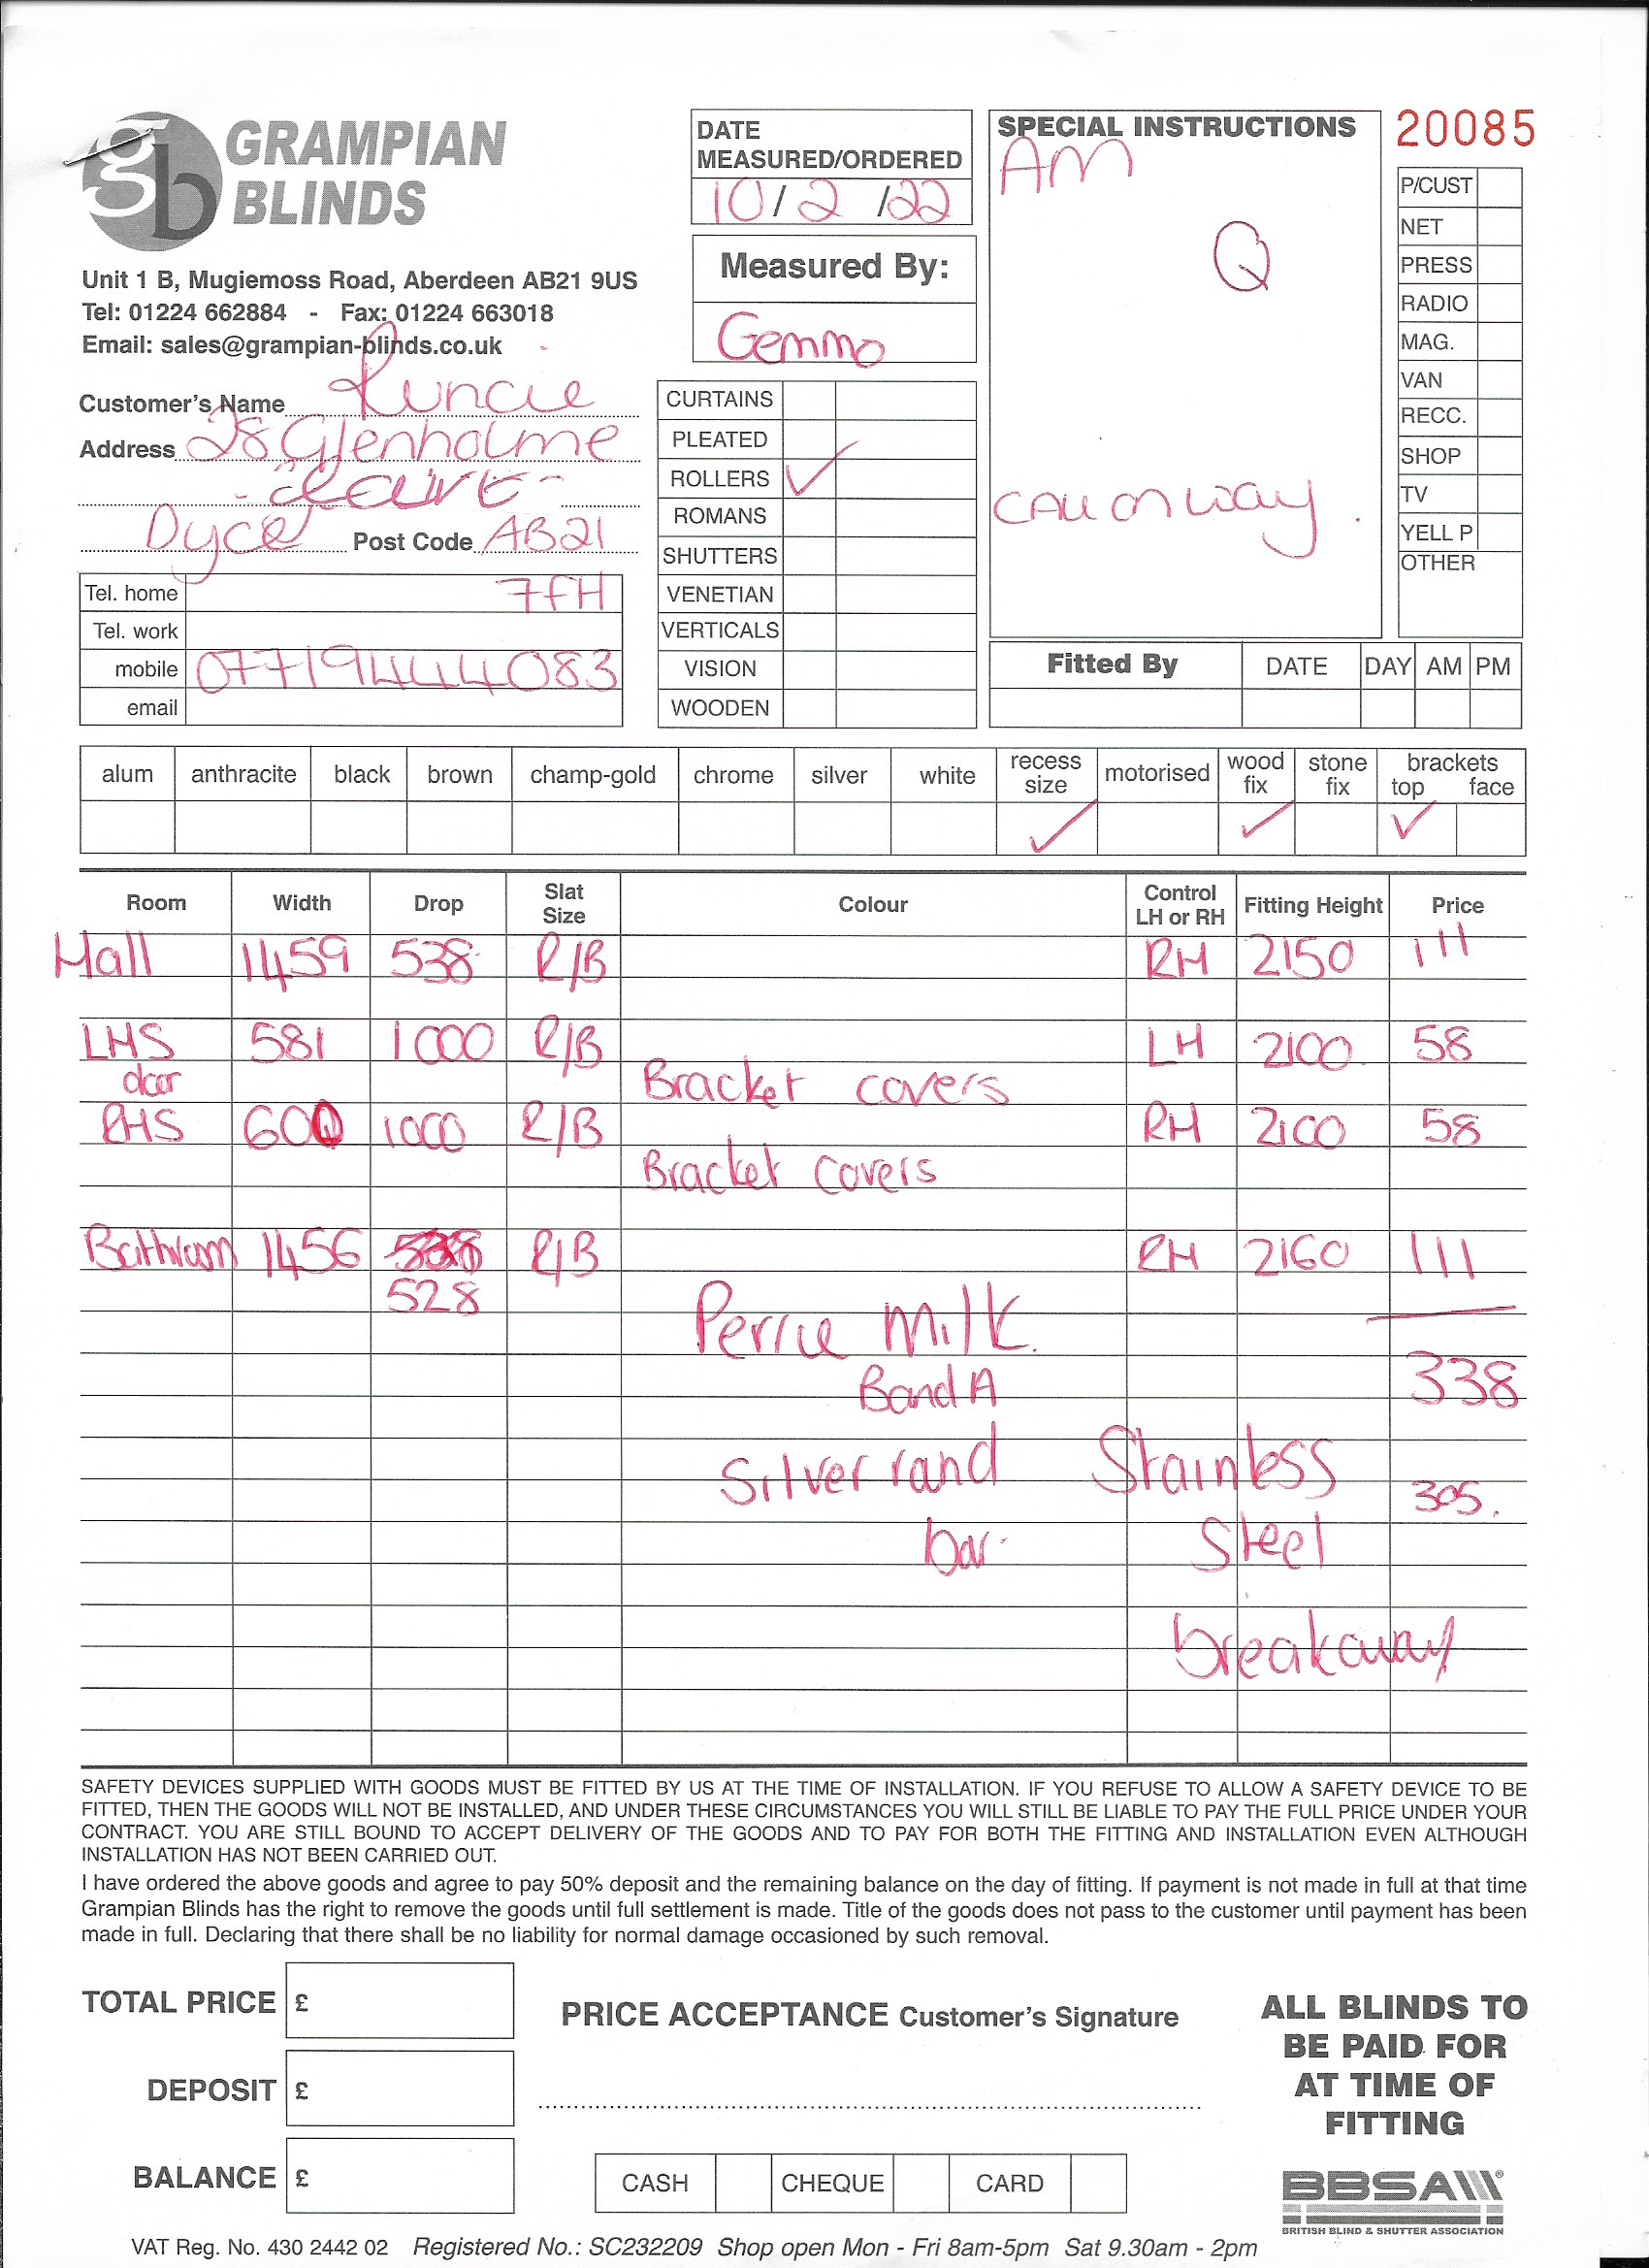 gb GRAMPIAN
BLINDS
Unit 1 B, Mugiemoss Road, Aberdeen AB21 9US
Tel: 01224 662884 - Fax: 01224 663018
Email: sales@grampian-blinds.co.uk
Customer's Name Runcie
Address 28 Glenholme
Dyce Post Code AB21
Tel. home 7FH
Tel. work
mobile 07719444083
email
DATE
MEASURED/ORDERED
10/2/22
Measured By:
Gemma
CURTAINS
PLEATED
ROLLERS ✓
ROMANS
SHUTTERS
VENETIAN
VERTICALS
VISION
WOODEN
SPECIAL INSTRUCTIONS
AM
Q
CALL ON WAY.
20085
P/CUST
NET
PRESS
RADIO
MAG.
VAN
RECC.
SHOP
TV
YELL P
OTHER
Fitted By DATE DAY AM PM
alum anthracite black brown champ-gold chrome silver white recess size motorised wood fix stone fix brackets top face
✓ ✓ ✓
Room Width Drop Slat Size Colour Control LH or RH Fitting Height Price
Hall 1459 538 R/B RH 2150 111
LHS 581 1000 R/B LH 2100 58
door Bracket covers
RHS 600 1000 R/B RH 2100 58
Bracket covers
Bathroom 1456 R/B RH 2160 111
528
Perrie Milk.
Band A 338
Silver rand Stainless 305.
bar Steel
breakaway
SAFETY DEVICES SUPPLIED WITH GOODS MUST BE FITTED BY US AT THE TIME OF INSTALLATION. IF YOU REFUSE TO ALLOW A SAFETY DEVICE TO BE
FITTED, THEN THE GOODS WILL NOT BE INSTALLED, AND UNDER THESE CIRCUMSTANCES YOU WILL STILL BE LIABLE TO PAY THE FULL PRICE UNDER YOUR
CONTRACT. YOU ARE STILL BOUND TO ACCEPT DELIVERY OF THE GOODS AND TO PAY FOR BOTH THE FITTING AND INSTALLATION EVEN ALTHOUGH
INSTALLATION HAS NOT BEEN CARRIED OUT.
I have ordered the above goods and agree to pay 50% deposit and the remaining balance on the day of fitting. If payment is not made in full at that time
Grampian Blinds has the right to remove the goods until full settlement is made. Title of the goods does not pass to the customer until payment has been
made in full. Declaring that there shall be no liability for normal damage occasioned by such removal.
TOTAL PRICE £
DEPOSIT £
BALANCE £
PRICE ACCEPTANCE Customer's Signature
CASH CHEQUE CARD
ALL BLINDS TO
BE PAID FOR
AT TIME OF
FITTING
BBSA
BRITISH BLIND & SHUTTER ASSOCIATION
VAT Reg. No. 430 2442 02 Registered No.: SC232209 Shop open Mon - Fri 8am-5pm Sat 9.30am - 2pm